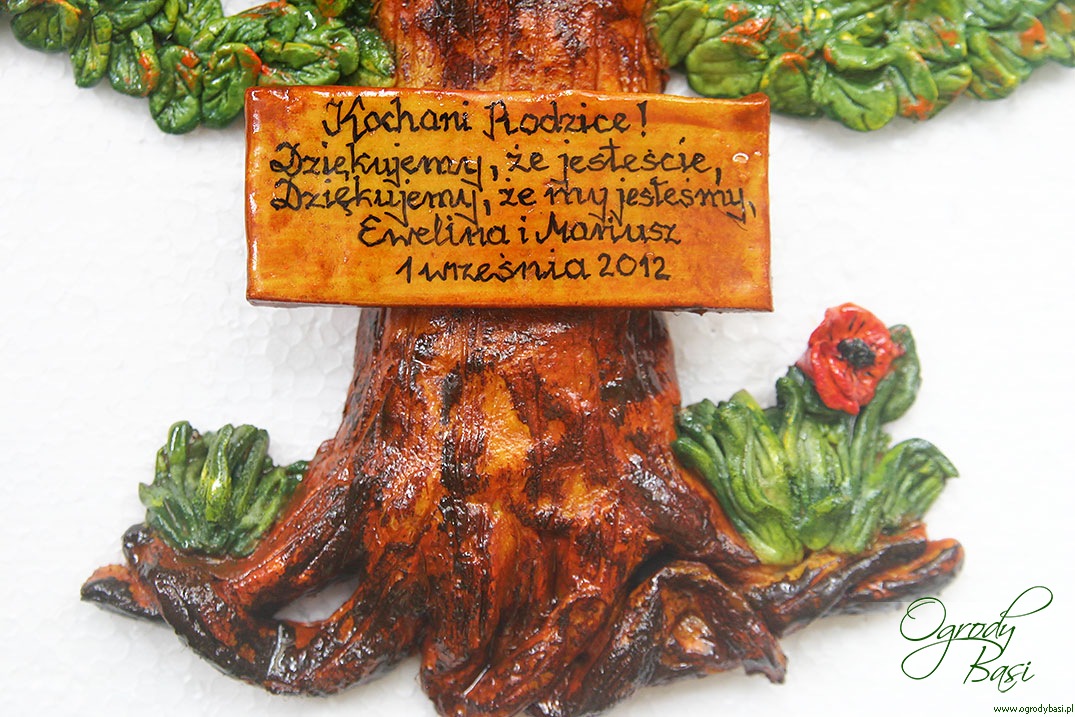 Kochani Rodzice!
Dziękujemy, że jesteście,
Dziękujemy, że my jesteśmy,
Ewelina i Mariusz
1 września 2012
Ogrody
Basi
www.ogrodybasi.pl